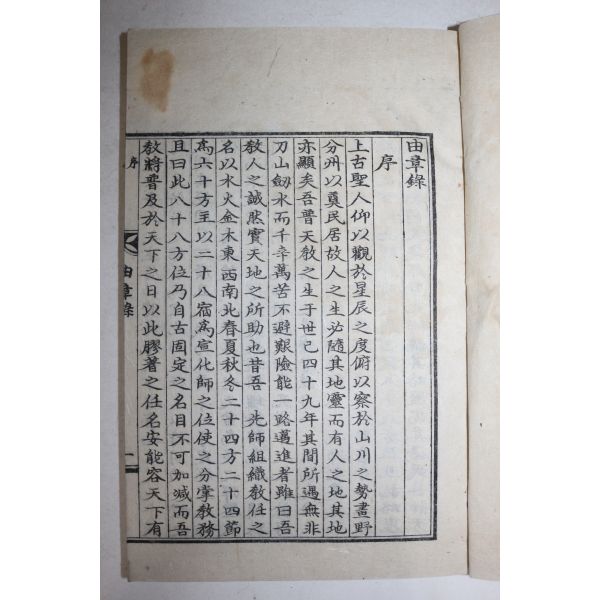 由章錄
序
上古聖人仰以觀於星辰之度俯以察於山川之勢畫野
分州以奠民居故人之生必隨其地靈而有人之地其地
亦顯矣吾普天敎之生于世己四十九年其間所遇無非
刀山劒水而千辛萬苦不避艱險能一路邁進者雖曰吾
敎人之誠然實天地之所助也昔吾 先師組織敎任之
名以水火金木東西南北春夏秋冬二十四方二十四節
爲六十方主以二十八宿爲宣化師之位使之分掌敎務
且曰此八十八方位乃自古固定之名目不可加減而吾
敎將普及於天下之日以此膠著之任名安能容天下有
序
由章錄
一